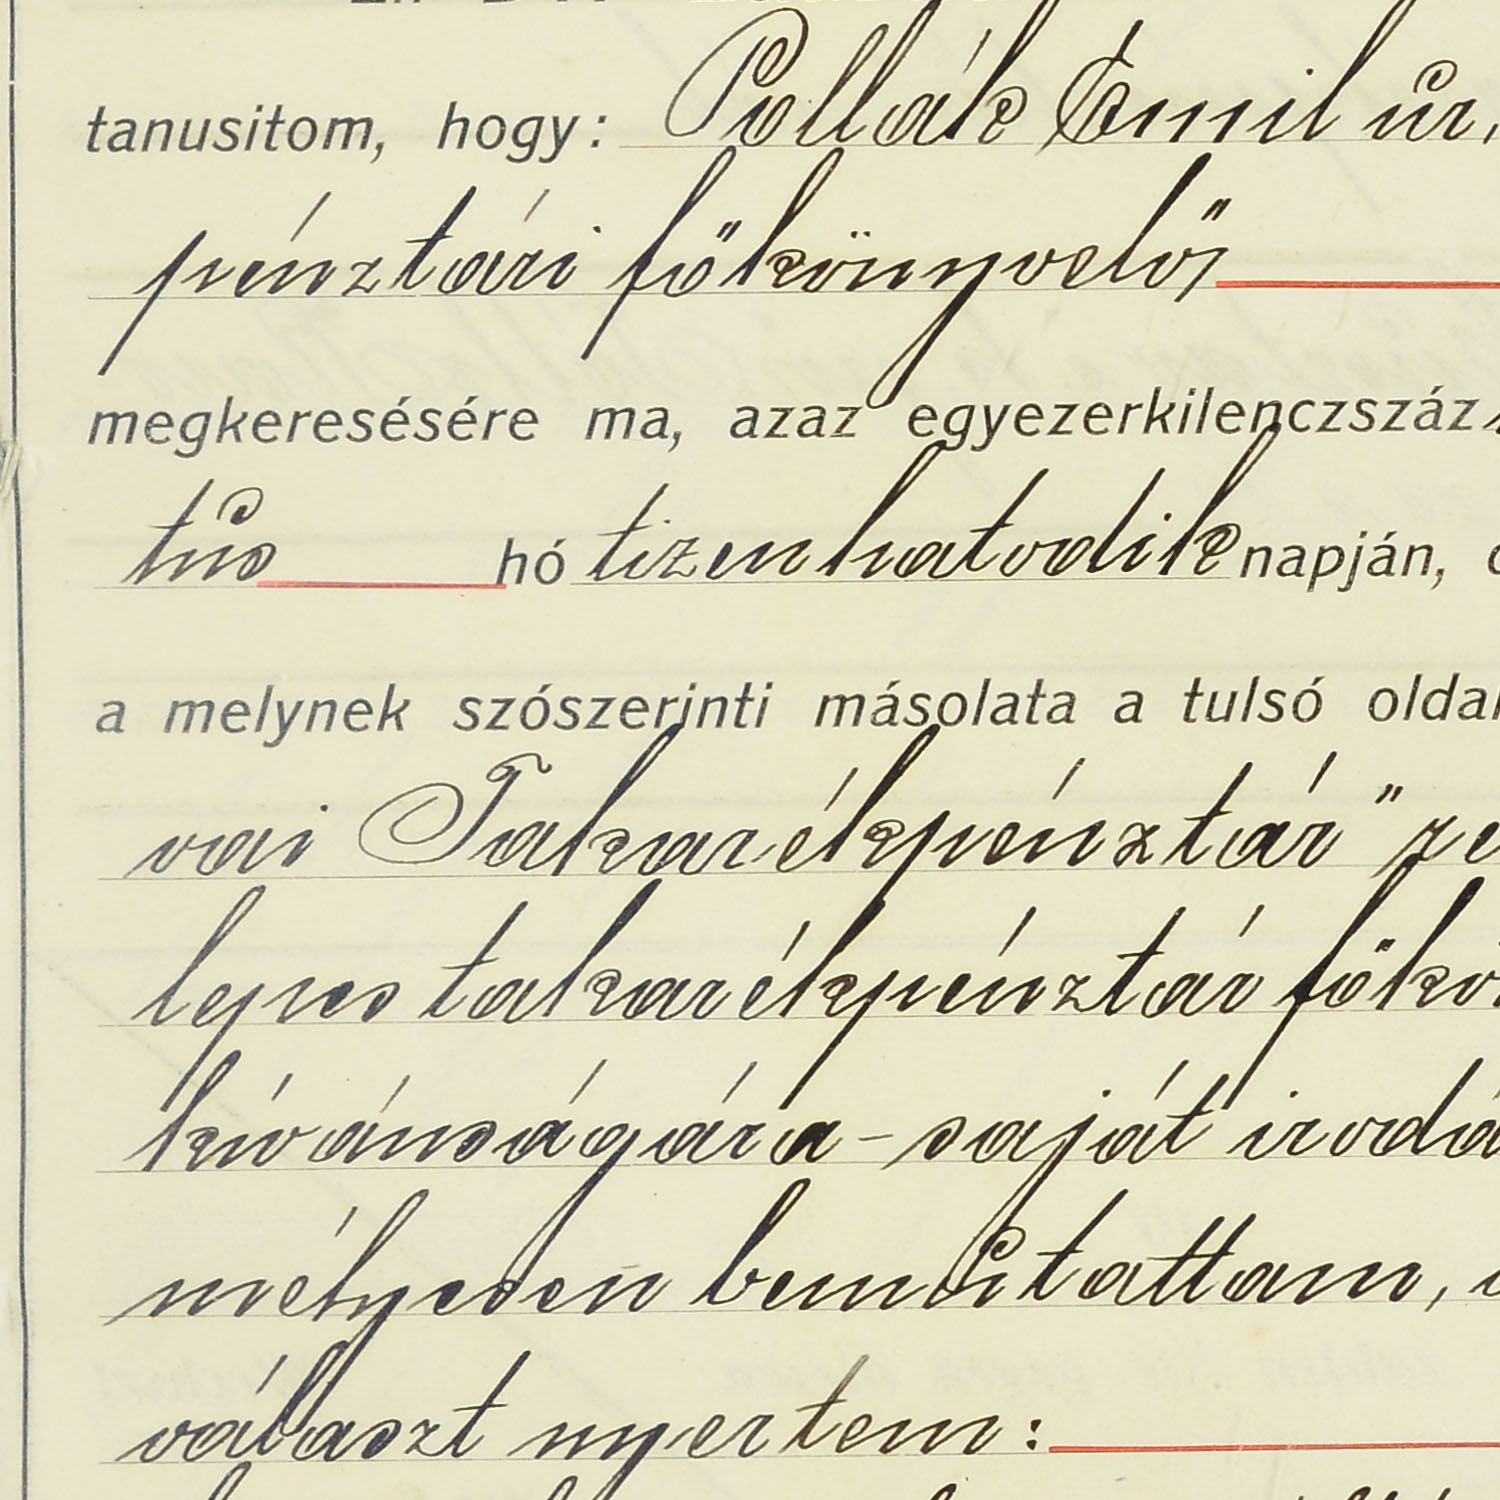 tanusitom, hogy: Pollák Emil úr,
pénztári főkönyvelő
megkeresésére ma, azaz egyezerkilenczszáz
tus hó tizenhatodik napján,
a melynek szószerinti másolata a tulsó oldal
vai Takarékpénztár" re
lepes takarékpénztár főkö
kívánságára - saját irodá
mélyesen bemutattam,
választ nyertem: